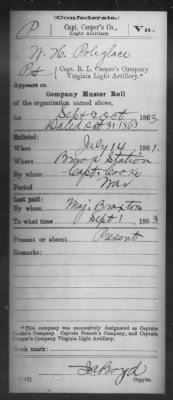 (Confederate.)
P Capt. Cooper's Co., Va.
Light Artillery.
W. H. Poleglace
Pvt, Capt. R. L. Cooper's Company
Virginia Light Artillery.*
Appears on
Company Muster Roll
of the organization named above,
for Sept & Oct, 1863.
Dated Oct 31 1863
Enlisted:
When July 14, 1861.
Where Station
By whom Capt. Cooke
Period War
Last paid:
By whom Maj. Braxton
To what time Sept 1, 1863.
Present or absent Present
Remarks:
*This company was successively designated as Captain
Cooke's Company, Captain French's Company, and Captain
Cooper's Company Virginia Light Artillery.
Book mark:
Boyd
Copyist.